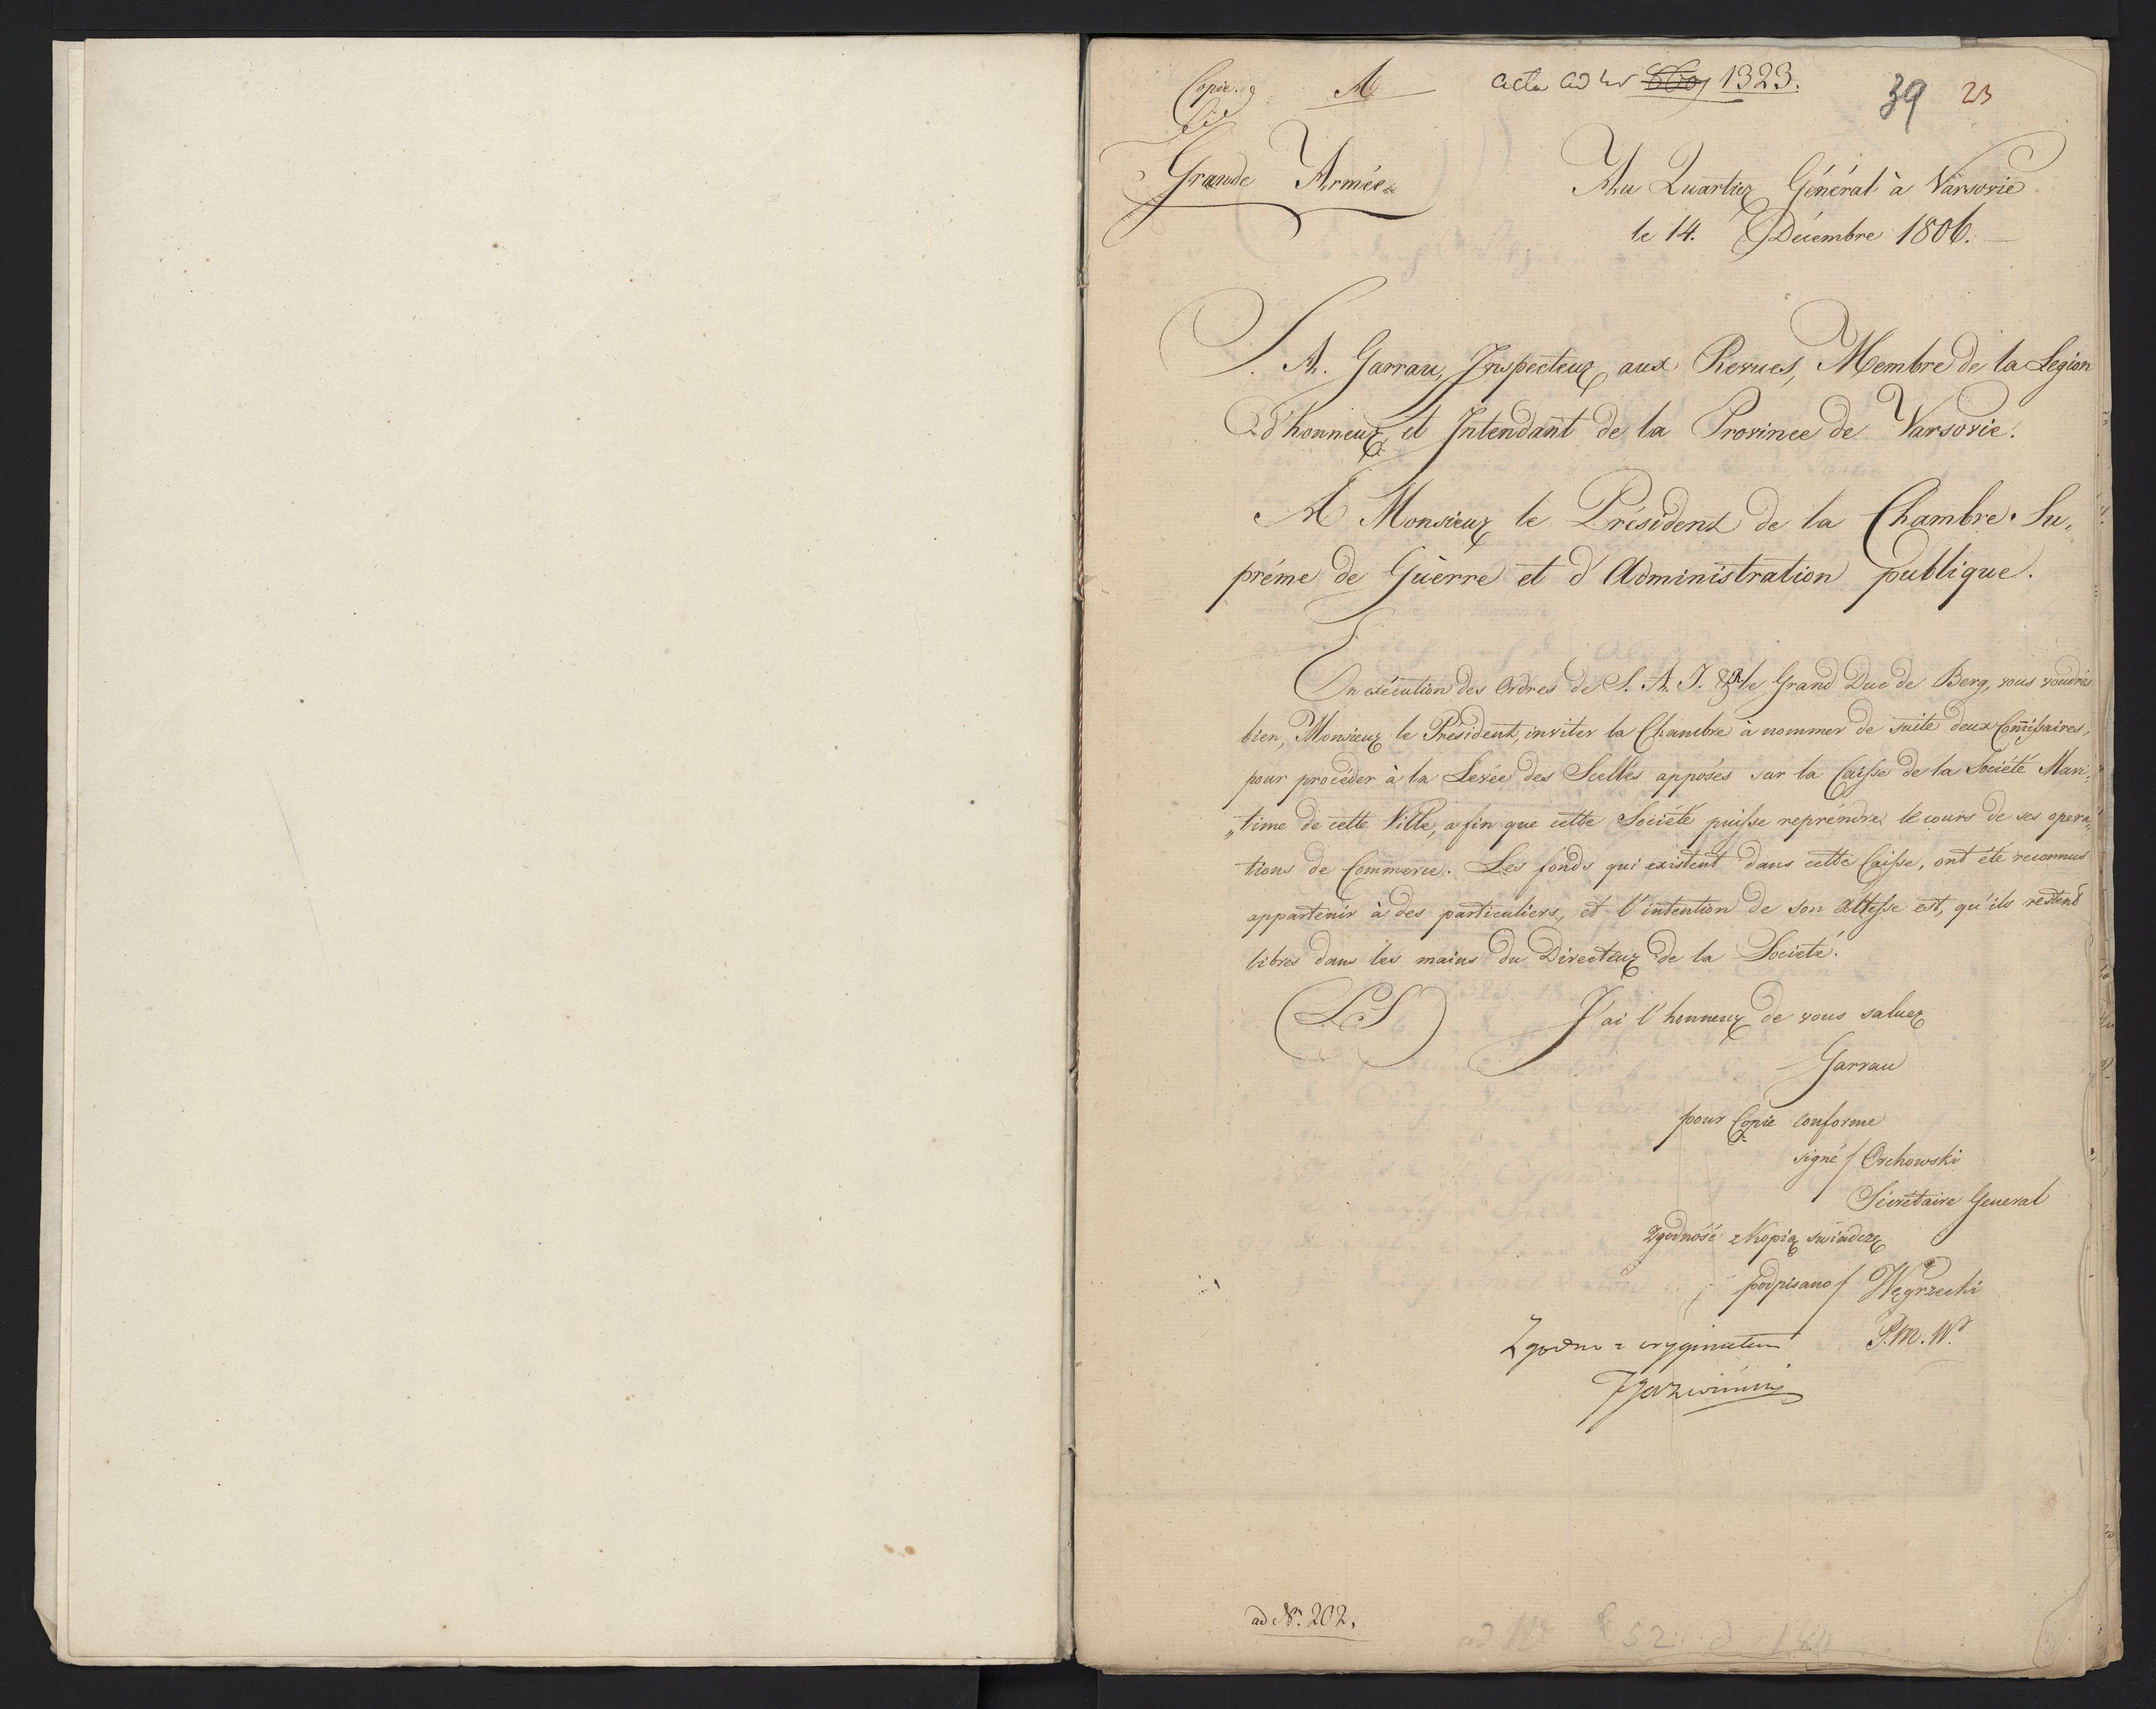 Copie.
A
acta ad Nr 660 1323.
39 23
Grande Armée
Au Quartier Général à Varsovie
le 14. Décembre 1806.
S. A. Garrau, Inspecteur aux Revues, Membre de la Legion
d'honneur et Intendant de la Province de Varsovie.
A Monsieur le Président de la Chambre Su,
préme de Guèrre et d'Administration publique.
En exécution des Ordres de S. A. J. & R. le Grand Duc de Berg, vous voudrés
bien, Monsieur le Président, inviter la Chambre à nommer de suite deux Comissaires,
pour procéder à la Levée des Scellés apposés sur la Caisse de la Société Mari,
„time de cette Ville, afin que cette Société puisse repréndre le cours de ses opera„
tions de Commerce. Les fonds qui existent dans cette Caisse, ont été reconnus
appartenir à des particuliers, et l'intention de son Altesse est, qu'ils restent
libres dans les mains du Directeur de la Societé.
(LS) J'ai l'honneur de vous saluer
Garrau
pour Copie conforme
signé / Orchowski
Sécrétaire General
Zgodność z Kopią swiadczę
podpisano / Węgrzecki
P. M. W.
Zgodno z oryginałem
ad Nr. 202.